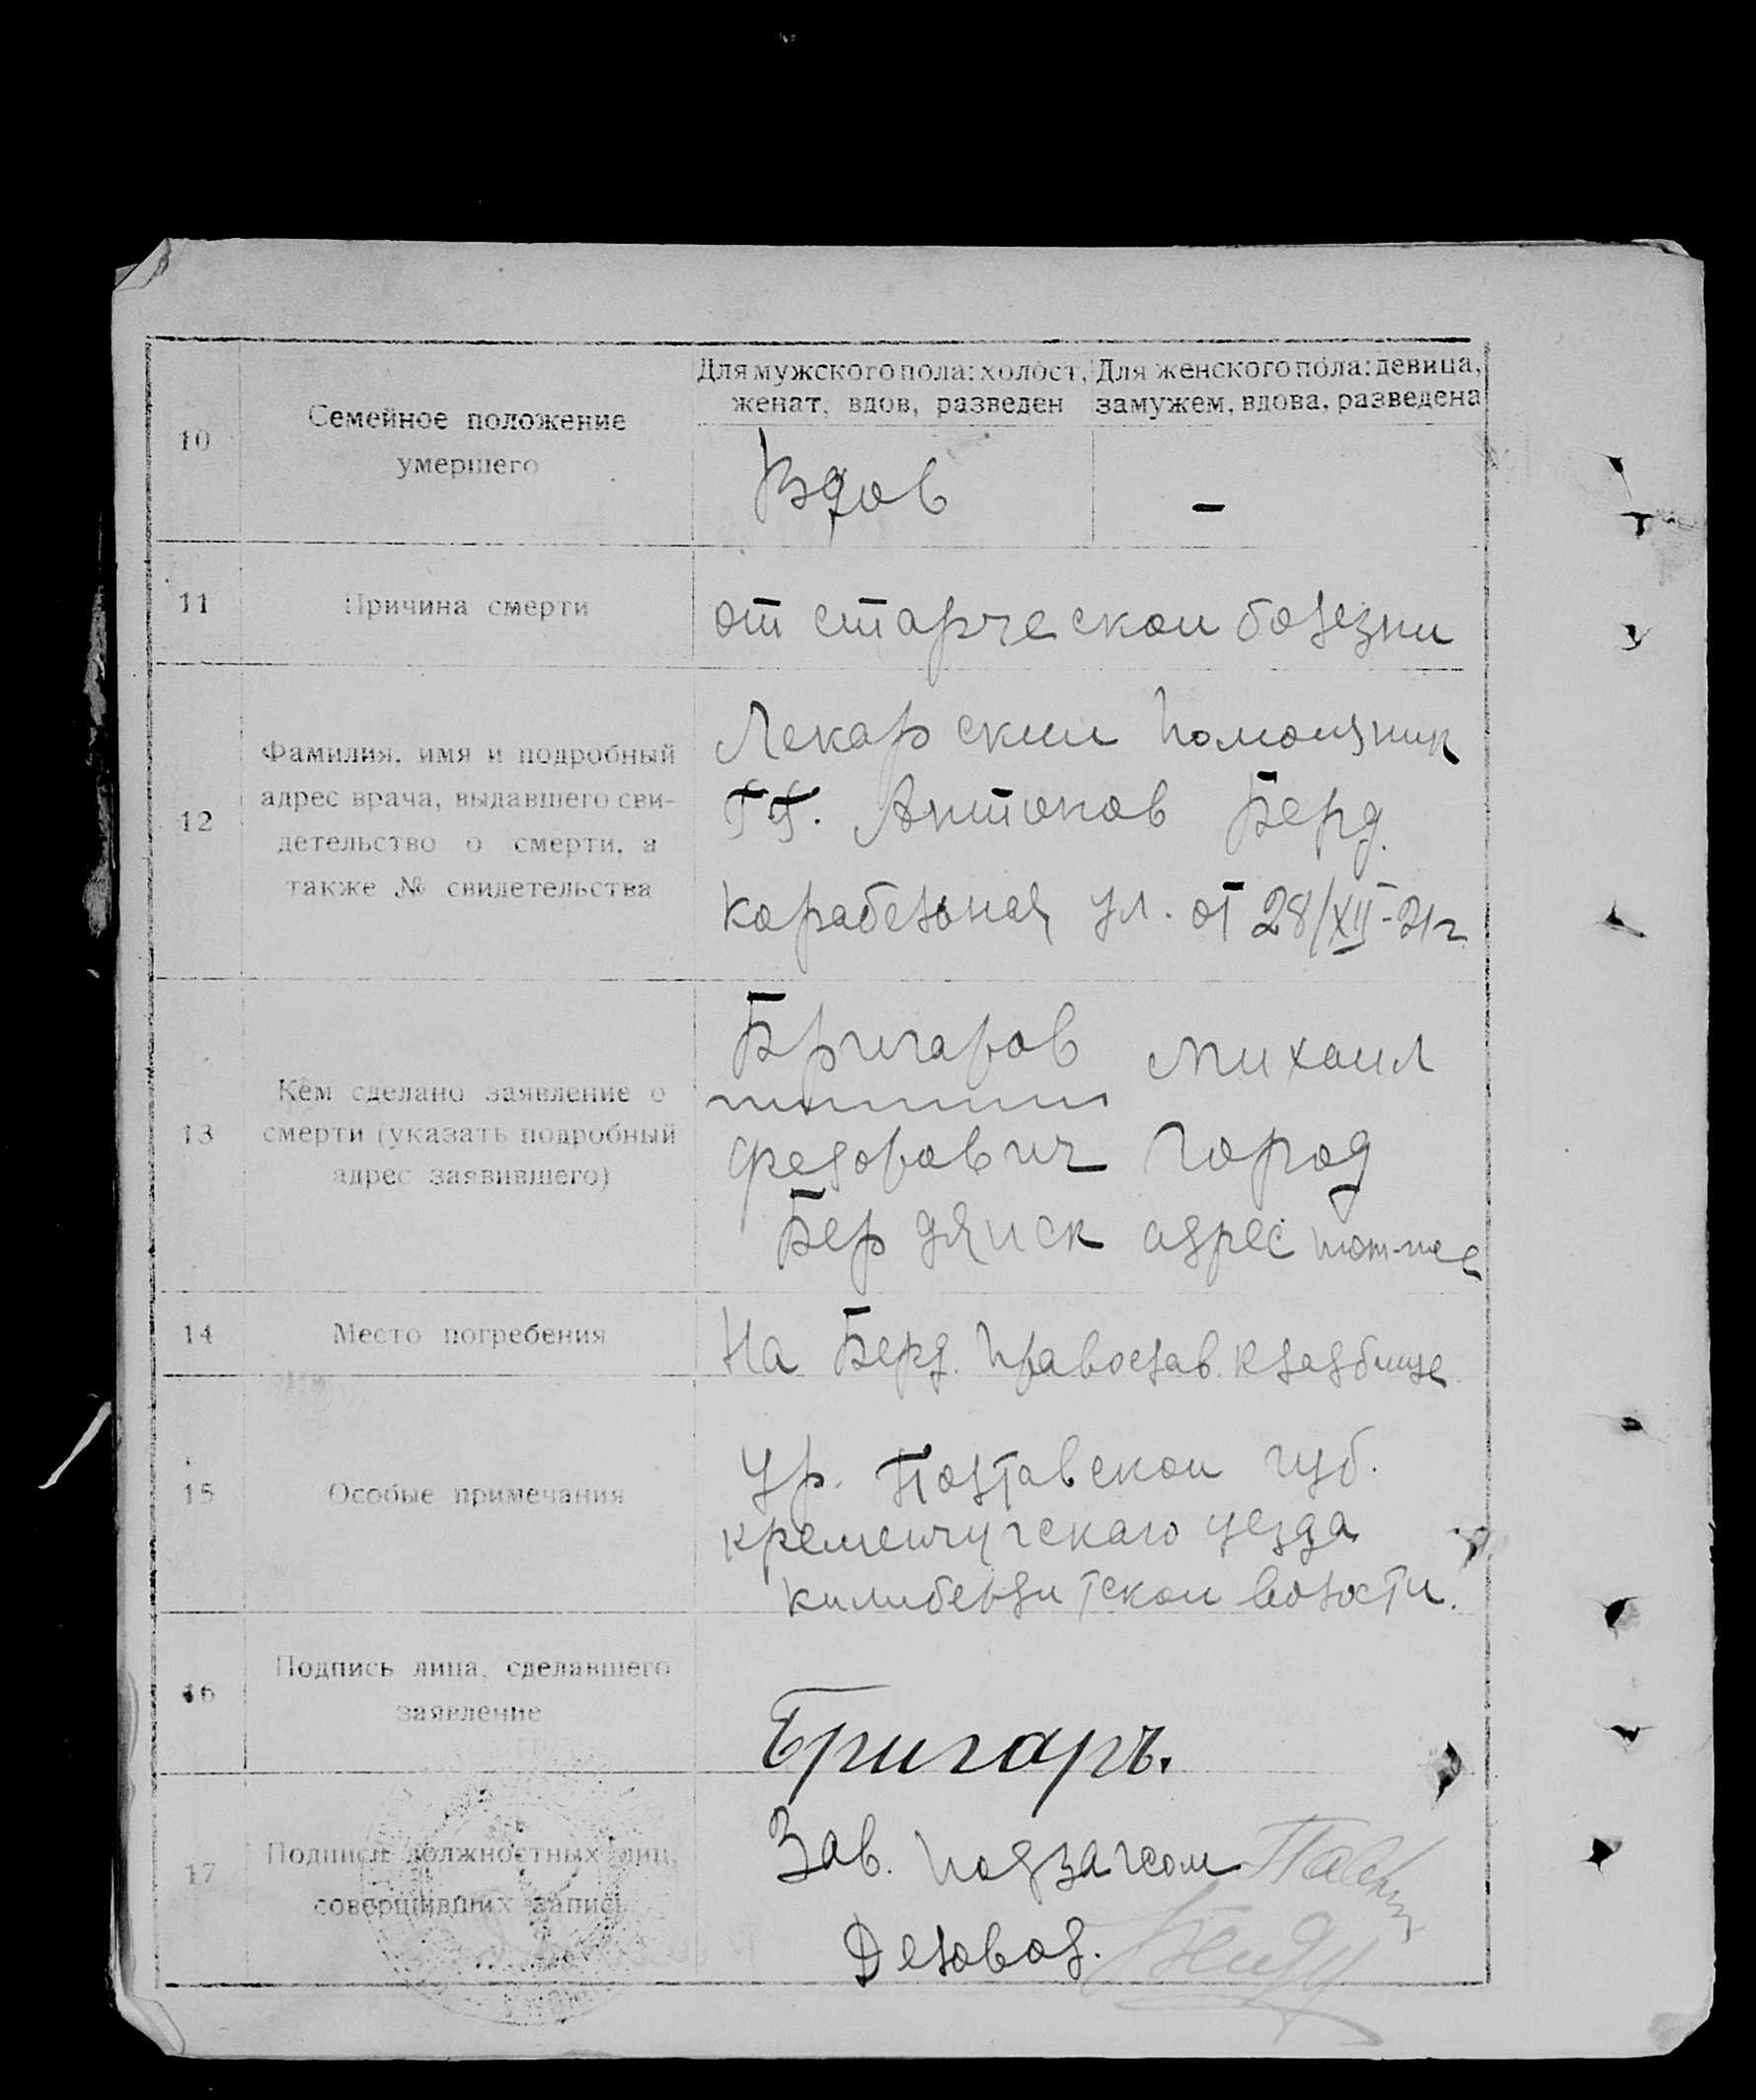 Для мужского пола: холост, женат, вдов, разведен
Для женского пола: девица, замужем, вдова, разведена
10
Семейное положение
умершего
Вдов
-
11
Причина смерти
от старческои болезни
12
Фамилия, имя и подробный
адрес врача, выдавшего сви-
детельство о смерти, а
также № свидетельства
Лекарскии помощник
Антонов Берд.
Карабельная ул. от 28/XII-21г
13
Кем сделано заявление о
смерти (указать подробный
адрес заявившего)
Бригаров Михаил
Федорович город
Бердянск адрес тот-же
14
Место погребения
На Берд. Православ. кладбище
15
Особые примечания
Ур. Полтавскои губ.
кременчугскаго уезда
волости.
16
Подпись лица, сделавшего
заявление
Бригаръ.
17
Подписи должностных лиц,
совершивших запись
Зав. подзагсом
Деловод.